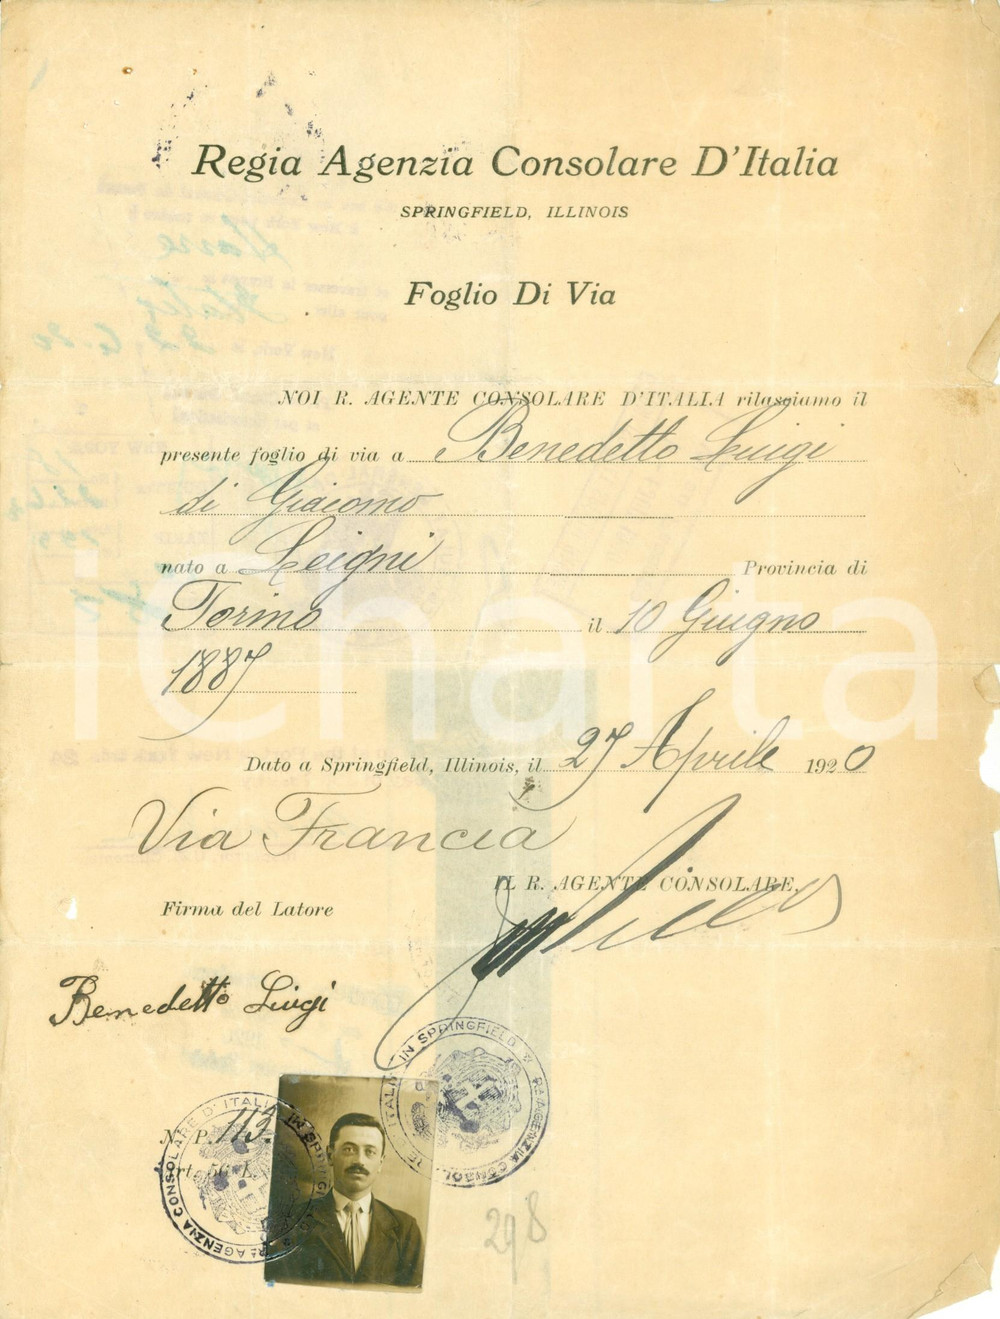 Regia Agenzia Consolare D'Italia
SPRINGFIELD, ILLINOIS
Foglio Di Via
NOI R. AGENTE CONSOLARE D'ITALIA rilasciamo il
presente foglio di via a Benedetto Luigi
di Giacomo
nato a Leigni Provincia di
Torino il 10 Giugno
1887
Dato a Springfield, Illinois, il 27 Aprile 1920
Via Francia
IL R. AGENTE CONSOLARE,
Firma del Latore
Benedetto Luigi
N. P. 113.
Art. 56
R.A AGENZIA CONSOLARE D'ITALIA IN SPRINGFIELD
R.A AGENZIA CONSOLARE D'ITALIA IN SPRINGFIELD
298
iCharta